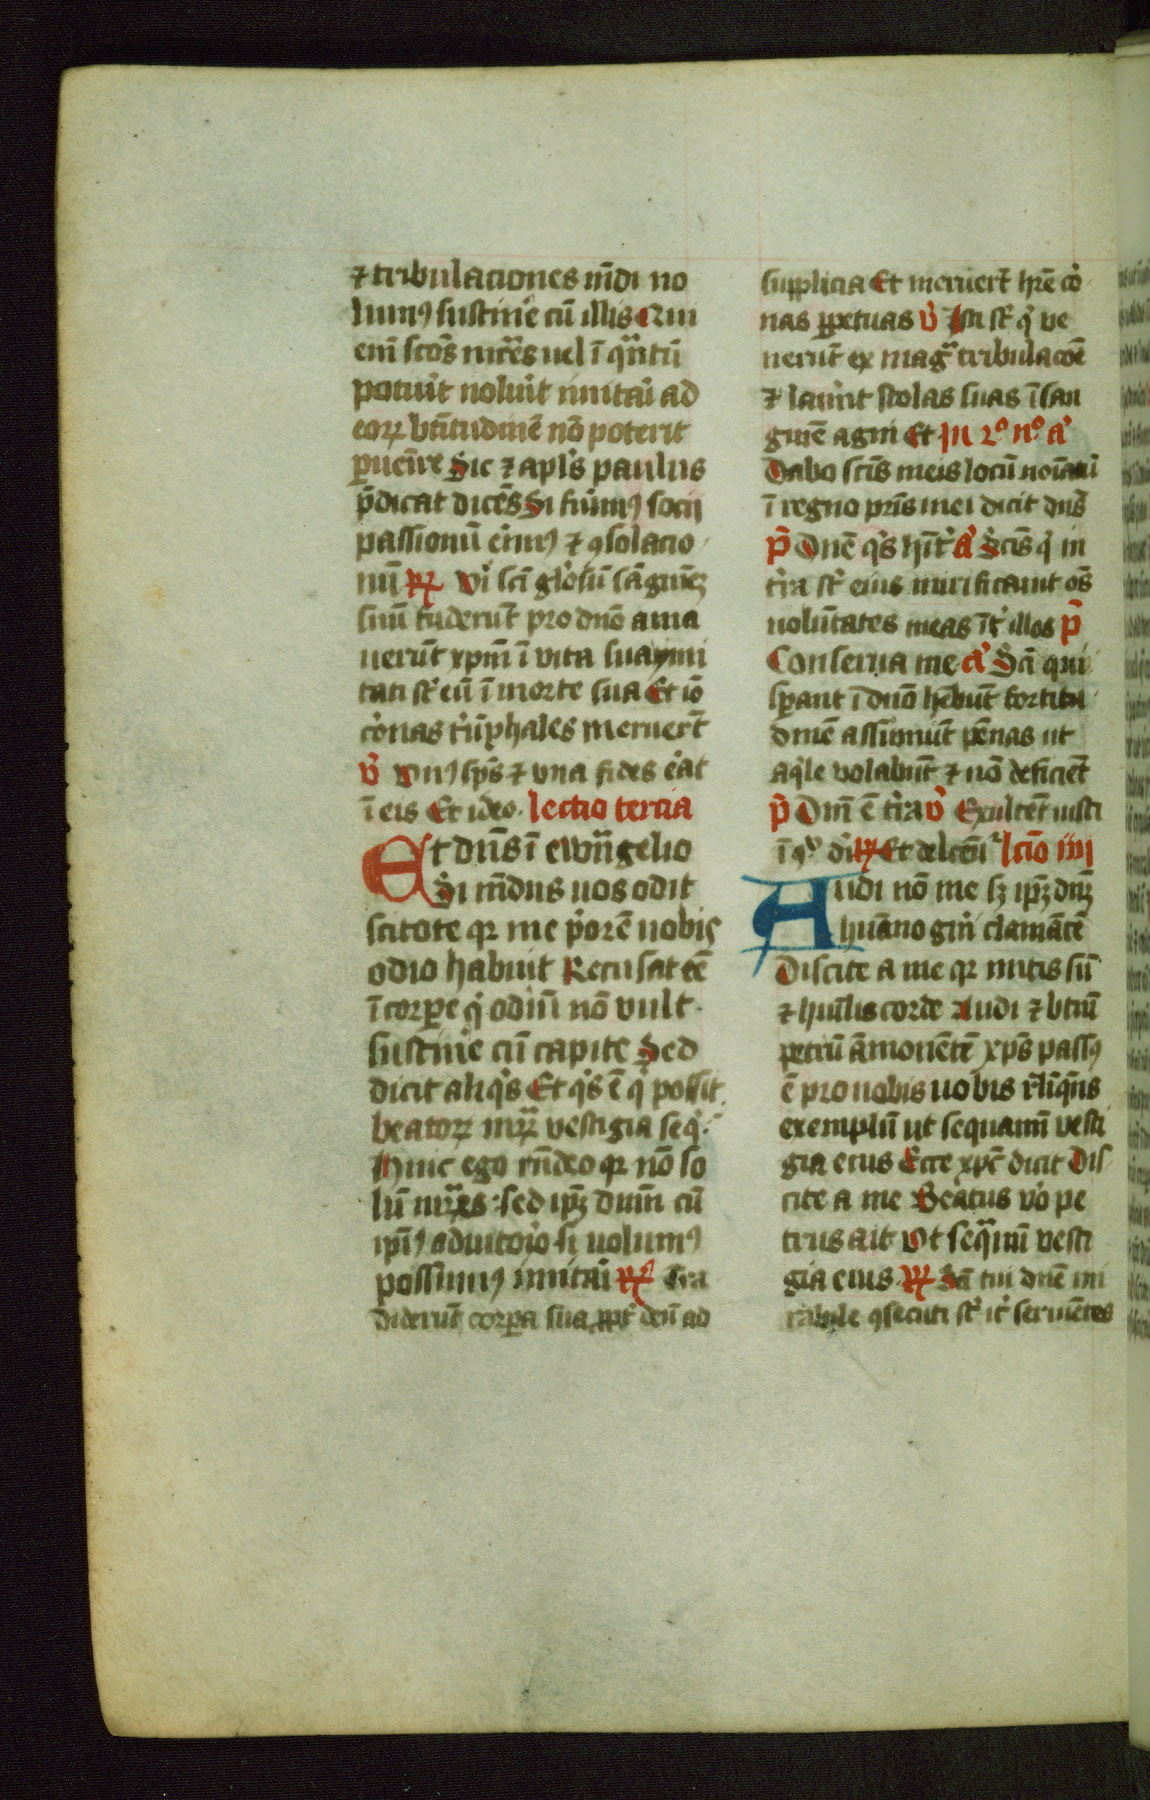 ⁊ tribulaciones mūdi no
lumꝰ sustinē cū illis Qui
eni͂ sc̄os mr̄es uel ī qᷓntū
potuit noluit imitari ad
eoꝝ bt̄itudinē nō poterit
ꝑueni͛e Sic ⁊ apl̄s paulus
p̄dicat dicēs Si fu͛imꝰ socij
passionū e͛imꝰ ⁊ ꝯsolacio
nū ꝶ Viri sc̄i gl̓osū sāguinē
suū fuderūt pro dn̄o ama
uerūt xp̄m ī vita sua ymi
tati st̄ eū ī morte sua Et iō
co͛nas t͛ūphales meruert̄
v̓ Vnꝰ sp̄s ⁊ vna fides e͛at
ī eis Et ideo lectio tercia
Et dn̄s ī ewāgelio
Si mūdus uos odit
scitote qꝛ me p̓orē uobis
odio habuit Recusat eē
ī corꝑe q̓ odiū nō vult
sustine͛e cū capite Sed
dicit aliqͥs Et qͥs ē qͥ possit
beatoꝝ mr̄ꝝ vestigia seqͥ
Huic ego rn̄deo qꝛ nō so
lū mr̄es sed ip̄ꝫ dn̄m cū
ipīꝰ adiutoͥo si uolumꝰ
possumꝰ imitari ꝶ Tra
diderūt corꝑa sua ꝓpt̓ deū ad
supplicia Et meruert̄ hr̄e co͛
nas ꝑpetuas v̓ Isti st̄ qͥ ve
nerūt ex magᷓ tribulacōe
⁊ lauerūt stolas suas ī san
guinē agni Et In 2º nº a͛
Dabo sc̄is meis locū noiatū
ī regno pr̄is mei dicit dn̄s
p̄ Dn̄e qͥs hīt͛ a͛ Sc̄is qͥ in
t͛ra st̄ eius mirificauit oēs
uolūtates meas īt̓ illos p̄
Conserua me a͛ Sc̄i qui
sꝑant ī dn̄o hēbūt fortitu
dinē assumūt pēnas ut
aqͥle volabūt ⁊ nō deficiēt
p̄ Dn̄i ē t͛ra v̓ Exultēt iusti
ī ꝯspectu di Et delcēnt͛ lcīo iiij
Audi nō me sꝫ ip̄ꝫ dn̄ꝫ
huāno gn̄i clamātē
Discite a me qꝛ mitis sū
⁊ hūilis corde Audi ⁊ btm̄
petrū āmonētē xp̄s passꝰ
ē pro uobis uobis rliqͥns
exemplū ut sequamī vesti
gia eius Ecce xp̄c dicit Dis
cite a me Beatus vo͛ pe
trus ait Vt seqᷓmī vesti
gia eius ꝶ Sc̄i tui dn̄e mi
rabile ꝯsecuti st̄ it͛ seruiētes